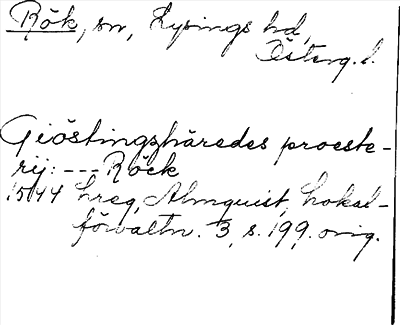 Rök, sn, Lysings hd,
Österg. l.
Giöstingzhäredes proeste-
rij: --- Röck
1544 hreg, Almquist, Lokal-
förvaltn. 3, s. 199. orig.